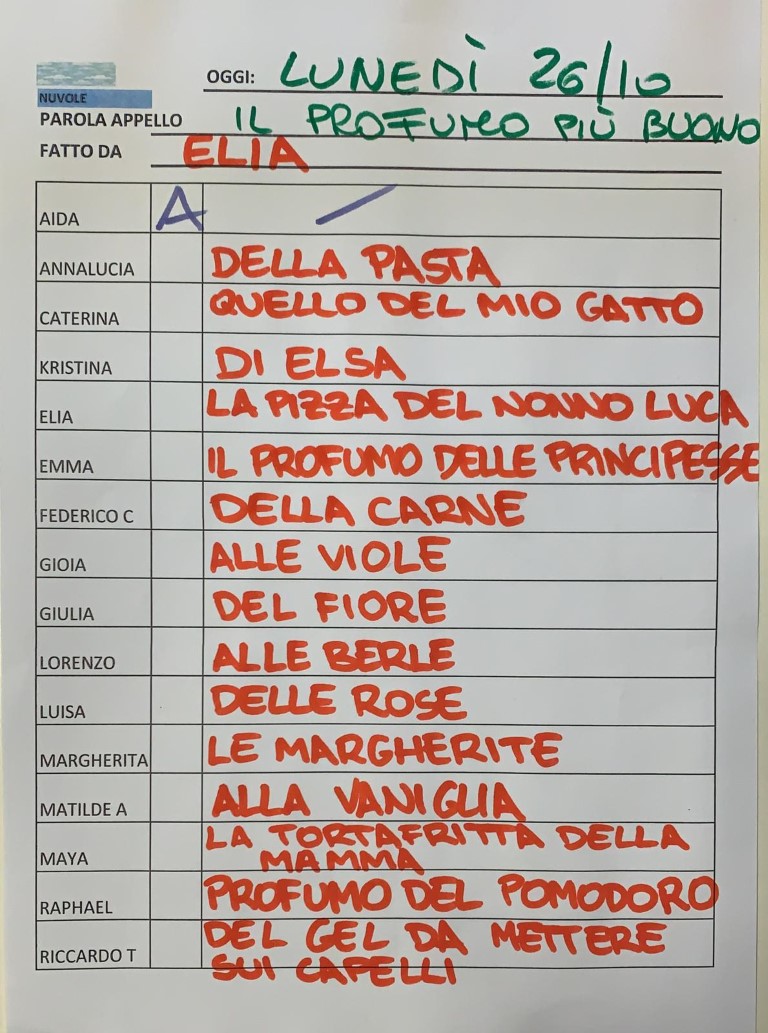 OGGI: LUNEDÌ 26/10
NUVOLE
PAROLA APPELLO IL PROFUMO PIÙ BUONO
FATTO DA ELIA
AIDA A /
ANNALUCIA DELLA PASTA
CATERINA QUELLO DEL MIO GATTO
KRISTINA DI ELSA
ELIA LA PIZZA DEL NONNO LUCA
EMMA IL PROFUMO DELLE PRINCIPESSE
FEDERICO C DELLA CARNE
GIOIA ALLE VIOLE
GIULIA DEL FIORE
LORENZO ALLE BERLE
LUISA DELLE ROSE
MARGHERITA LE MARGHERITE
MATILDE A ALLA VANIGLIA
MAYA LA TORTAFRITTA DELLA
MAMMA
RAPHAEL PROFUMO DEL POMODORO
RICCARDO T DEL GEL DA METTERE
SUI CAPELLI